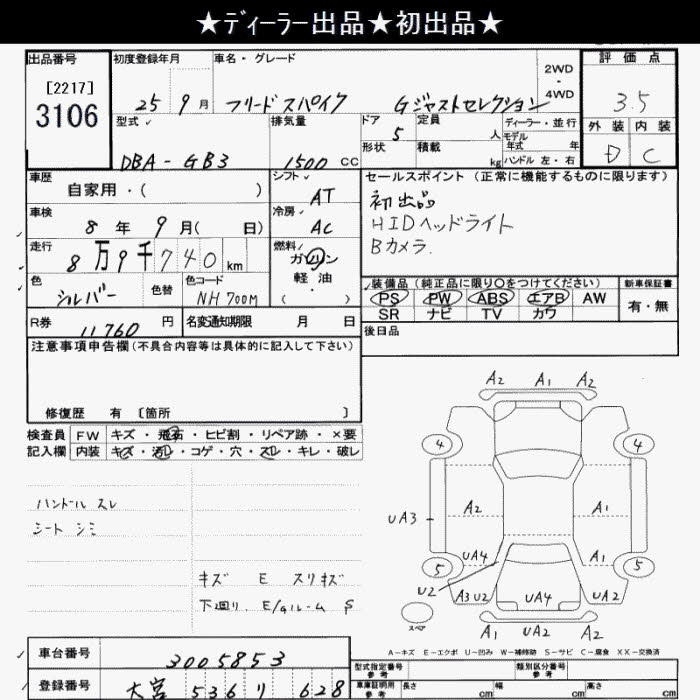 ★ディーラー出品★初出品★
出品番号 初度登録年月 車名・グレード 2WD・4WD 評価点
[2217]
3106
25 9月 フリードスパイク Gジャストセレクション 3.5
型式 排気量 ドア 定員 ディーラー・並行 外装 内装
DBA-GB3 1500 CC 5 人 モデル年式 年
形状 積載 kg ハンドル 左・右 D C
車歴 シフト セールスポイント (正常に機能するものに限ります)
自家用・( ) AT 初出品
車検 冷房 HIDヘッドライト
8年9月( 日) AC Bカメラ.
走行 燃料
8万9千740km ガソリン
色 色替 色コード 軽・油
シルバー NH700M ( ・ )
装備品 (純正品に限り○をつけてください) 新車保証書
PS PW ABS エアB AW 有・無
SR ナビ TV カワ
R券 11,760 円 名変通知期限 月 日
後日品
注意事項申告欄(不具合内容等は具体的に記入して下さい)
修復歴 有 〔箇所 〕
検査員 FW キズ・飛石・ヒビ割・リペア跡・×要
記入欄 内装 キズ・汚レ・コゲ・穴・スレ・キレ・破レ
ハンドル スレ
シート シミ
キズ E スリキズ
下廻り. E/gルーム S
A2 A1 A2
4 4
UA3 A2 A1
UA4 A1
5 5
U2 A3 U2 UA4 UA2
スペア A1 UA2 A2
A-キズ E-エクボ U-凹み W-補修跡 S-サビ C-腐食 XX-交換済
車台番号 3005853
型式指定番号 参考 類別区分番号 参考
登録番号 大宮 536 リ 628
車庫証明用 参考 長さ cm 幅 cm 高さ cm